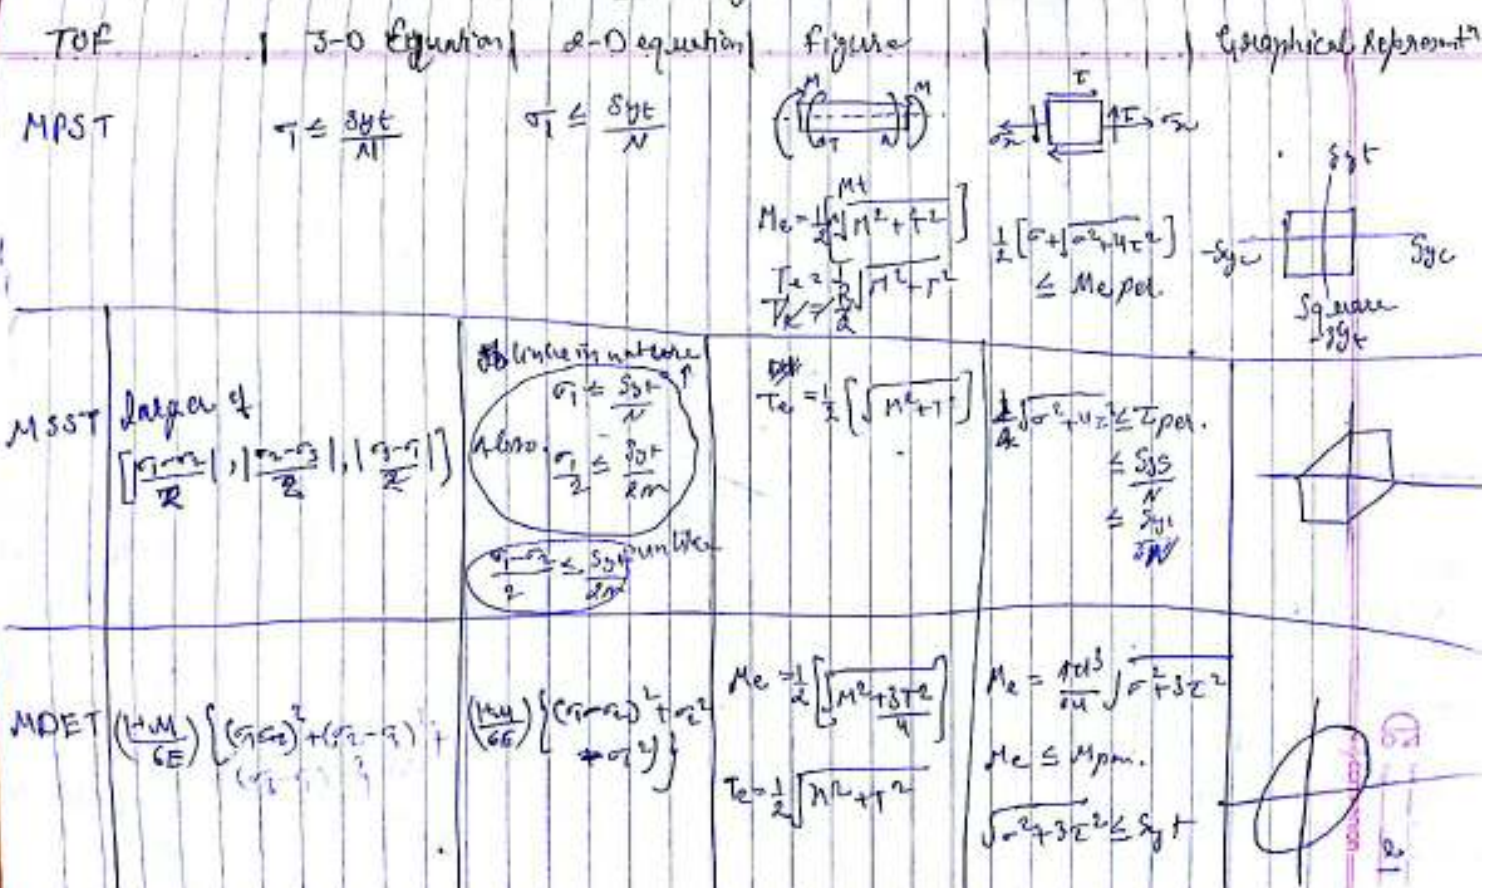 TOF | 3-D Equation | 2-D equation | figure | | Graphical Represent^n
MPST
σ1 ≤ Syt/N
σ1 ≤ Syt/N
M M
T N
τ
σx τ σx
Me = 1/2[M+√(M²+T²)]
Te = 1/2 √(M²+T²)
1/2[σ+√(σ²+4τ²)]
≤ Me per.
Syt
-Syc Syc
Square
-Syt
MSST
larger of
[|σ1-σ2/2|, |σ2-σ3/2|, |σ3-σ1/2|]
like in nature
σ1 ≤ Syt/N
also. σ1/2 ≤ Syt/2n
(σ1-σ2)/2 ≤ Syt/2n unlike
Te = 1/2 [√(M²+T²)]
√(σ²+4τ²) ≤ τper.
≤ Sys/N
≤ Syt
MDET
(1+M/6E) {(σ1-σ2)²+(σ2-σ3)²+
(1+M/6E) {(σ1-σ2)²+σ2²
+σ1²)}
Me = 1/2 [√(M²+3T²/4)]
Te = 1/2 √(M²+T²)
Me = πd³/64 √(σ²+3τ²)
Me ≤ Mper.
√(σ²+3τ²) ≤ Syt